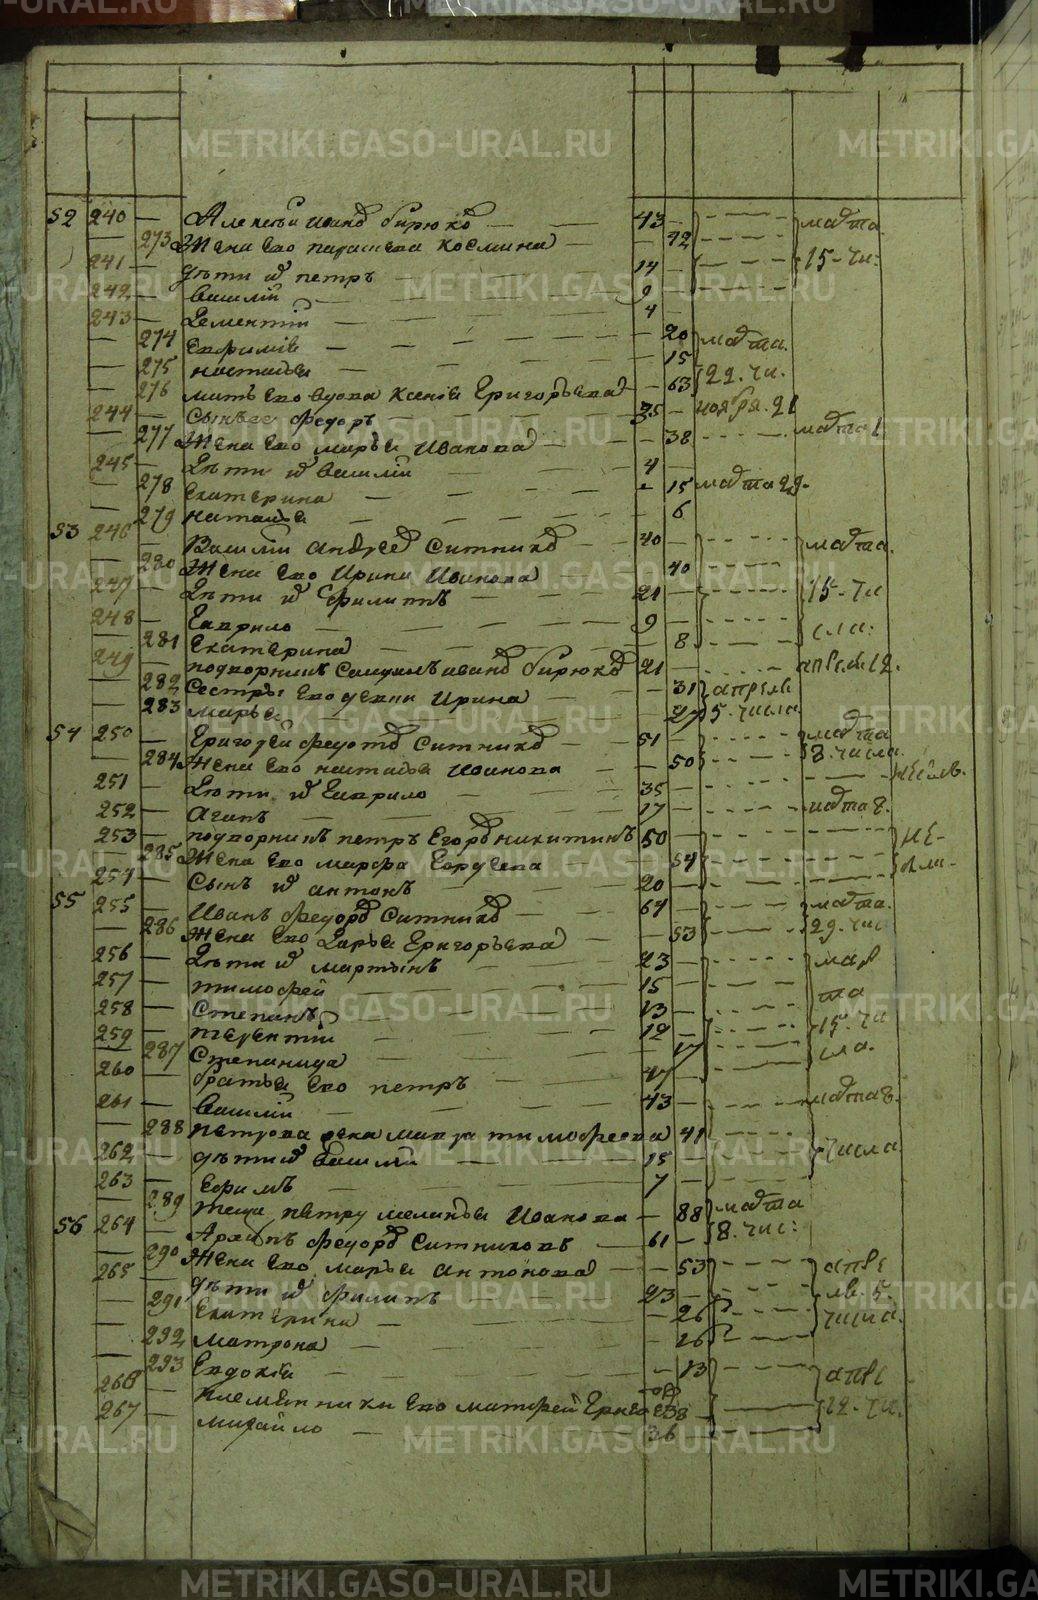 METRIKI.GASO-URAL.RU
52 240 — Алексѣй Иванов Бирюков — 43 — марта
— 273 Жена ево парасковья Космина — 42
241 — дѣти их петръ — 14 — 15 - чи:
242 — василий — 9 —
243 — Дементий — 4 —
— 274 Ефимия — 20 марта.
— 275 настасья — 15
— 276 мать ево вдова Ксенія Григорьева — 63 29. чи.
244 — Сынъ ее федоръ — 35 — ноября. 21
— 277 Жена ево марья Иванова — 38 марта
245 — Дѣти их василий — 4 —
— 278 Екатерина — 15 марта 29.
— 279 наталья — 6
53 246 — Василий андреев Ситников — 40 — марта.
— 280 Жена ево Ирина Иванова — 40
247 — Дѣти их филипъ — 21 — 15 - чи
248 — Гаврило — 9 — сла:
— 281 Екатерина — 8
249 — подворник Самуилъ иванов бирюков 21 — апрѣл. 12.
— 282 Сестры ево девки Ирина — 31 апреля
— 283 марья — 27 5. числа
54 250 — Григорей федотов Ситников — 51 — марта
— 284 Жена ево настасья Иванова — 50 8. числа.
251 — Дѣти их Гаврило — 35 —
252 — Агапъ — 17 — марта 8.
253 — подворникъ петръ Егоров никитинъ 50 —
— 285 Жена ево марфа Гордеева — 54
254 — Сынъ их антонъ — 20 —
55 255 — Иванъ федоров Ситников — 64 — марта.
— 286 Жена ево Дарья Григорьева — 53 29. чис
256 — Дѣти их мартынъ — 23 — мар
257 — тимофей — 15 — та
258 — Степанъ — 13 — 15. чи
259 — терентий — 12 — сла.
— 287 Степанида — 17
260 — братья ево петръ — 47 —
261 — василий — 43 — марта 8.
— 288 петрова жена мавра тимофеева 41 числа
262 — дѣти их василий — 15 —
263 — Ефимъ — 7 —
— 289 теща петру меланья Иванова — 88 марта
56 264 — Архипъ федоров Ситниковъ — 61 — 8. чис:
— 290 Жена ево марья антонова — 53 апре
265 — дѣти их филипъ — 23 — ля. 5.
— 291 Екатерина — 26 числа.
— 292 матрона — 26
— 293 Евдокия — 13 апре
266 — племянники ево матфей 38 — 12. чи.
267 — михайло — 36